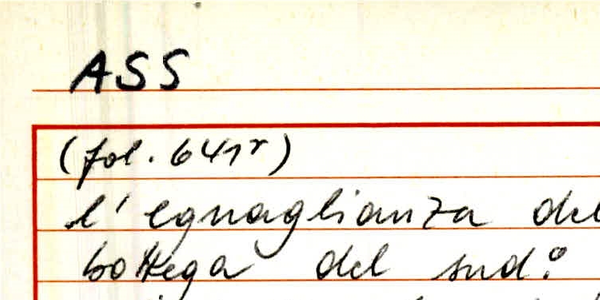 ASS
(fol. 641r)
l'egnaglianza del
bottega del sud.o